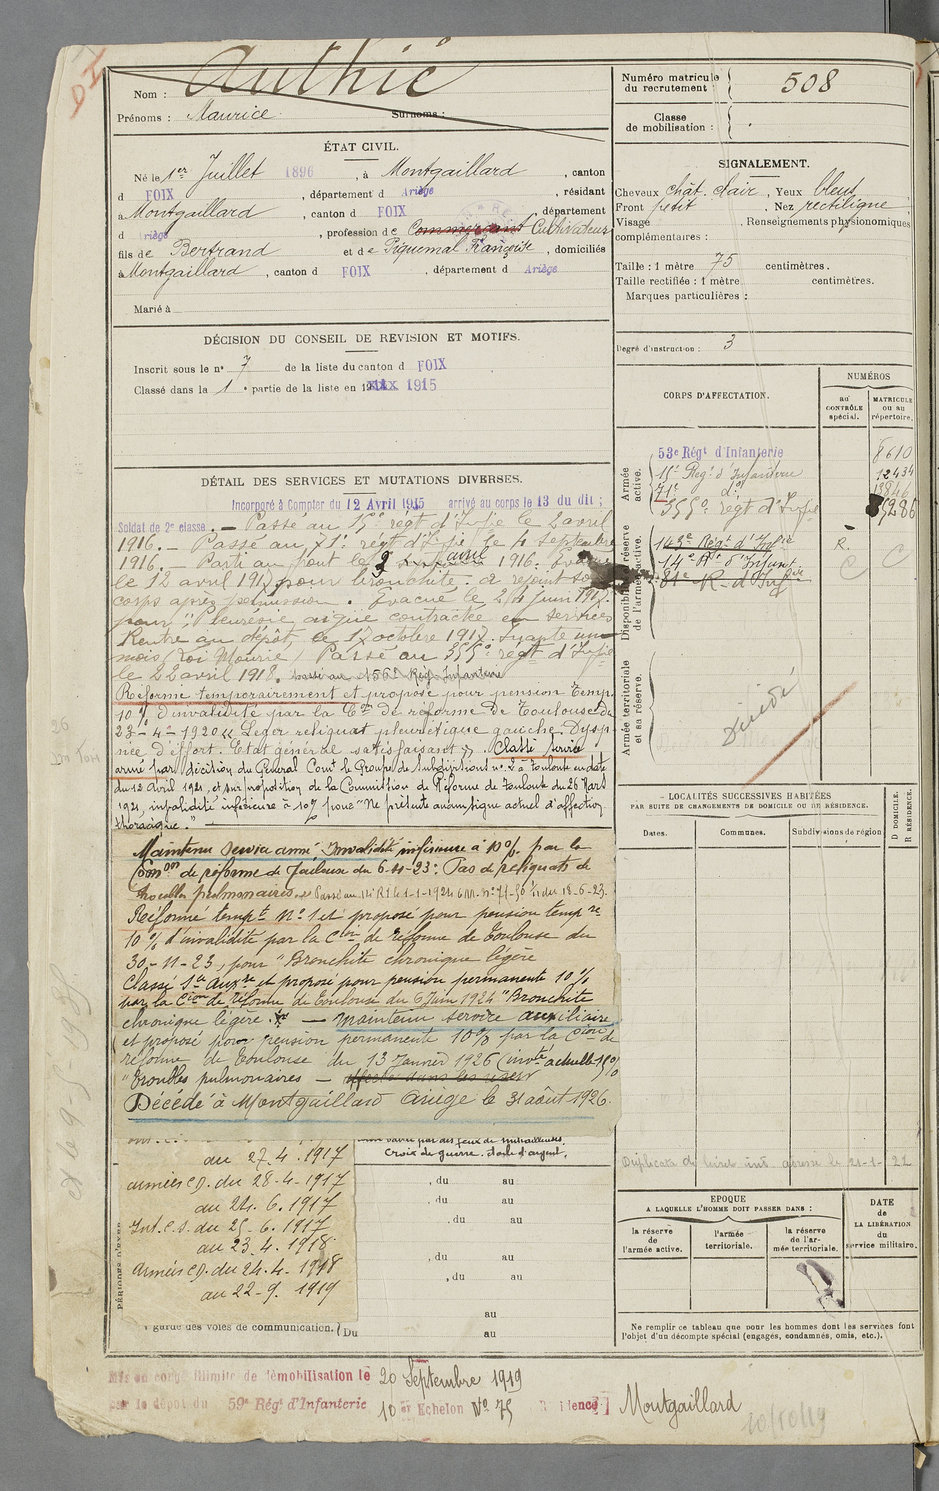 Nom : Authié
Prénoms : Maurice Surnoms :
Numéro matricule du recrutement : 508
Classe de mobilisation :
ÉTAT CIVIL.
Né le 1er Juillet 1896, à Montgaillard, canton
d FOIX, département d Ariège, résidant
à Montgaillard, canton d FOIX, département
d Ariège, profession de Commerçant Cultivateur
fils de Bertrand et de Piquemal Françoise, domiciliés
à Montgaillard, canton d FOIX, département d Ariège
Marié à
SIGNALEMENT.
Cheveux chât. clair, Yeux bleus
Front petit, Nez rectiligne
Visage , Renseignements physionomiques
complémentaires :
Taille : 1 mètre 75 centimètres.
Taille rectifiée : 1 mètre centimètres.
Marques particulières :
Degré d'instruction : 3
DÉCISION DU CONSEIL DE REVISION ET MOTIFS.
Inscrit sous le n° 7 de la liste du canton d FOIX
Classé dans la 1e partie de la liste en 1915
CORPS D'AFFECTATION.
NUMÉROS
au CONTRÔLE spécial.
MATRICULE ou au répertoire.
Armée active.
53e Régt d'Infanterie 8610
15e Régt d'Infanterie 12434
71e do 13846
355e régt d'Infie
Disponibilité et réserve de l'armée active.
143e Régt d'Infie R.
14e Rt d'Infant
81e R. d'Infie
Armée territoriale et sa réserve.
Décédé
DÉTAIL DES SERVICES ET MUTATIONS DIVERSES.
Incorporé à Compter du 12 Avril 1915 arrivé au corps le 13 du dit ;
Soldat de 2e classe. — Passé au 15e régt d'Infie le 2 avril
1916. — Passé au 71e régt d'Infie le 4 Septembre
1916. — Parti au front le 9 avril 1916. Evacué
le 12 avril 1917 pour bronchite. a rejoint son
corps après permission. Evacué le 24 juin 1917
pour "Pleurésie aigüe contractée en service
Rentré au dépôt le 17 octobre 1917. Inapte un
mois (Loi Mourier) Passé au 355e régt d'Infie
le 22 avril 1918. passé au 156e Régt Infanterie
Réformé temporairement et proposé pour pension temp.
10% d'invalidité par la Con de réforme de Toulouse du
23-4-1920 "Léger reliquat pleurétique gauche. Dysp
née d'effort. Etat général satisfaisant". Classé service
armé par décision du Général Comt le Groupe de Subdivisions n° 2 à Toulouse en date
du 12 avril 1921, et sur proposition de la Commission de Réforme de Toulouse du 26 Mars
1921, invalidité inférieure à 10% pour "Ne présente aucun signe actuel d'affection
thoracique."
Maintenu Service armé Invalidité inférieure à 10% par la
Comon de réforme de Toulouse du 6-11-23. Pas de reliquats de
pulmonaires. Passé au 14e R.I. le 1-1-1924
Réformé tempt N° 1 et proposé pour pension tempre
10% d'invalidité par la Con de réforme de Toulouse du
30-11-23, pour "Bronchite chronique légère
Classé Sce Auxre et proposé pour pension permanente 10%
par la Con de réforme de Toulouse du 6 Juin 1924 "Bronchite
chronique légère. — Maintenu service auxiliaire
et proposé pour pension permanente 10% par la Con de
réforme de Toulouse du 13 Janvier 1926 (invté actuelle 15%
"Troubles pulmonaires —
Décédé à Montgaillard Ariège le 31 août 1926.
LOCALITÉS SUCCESSIVES HABITÉES
PAR SUITE DE CHANGEMENTS DE DOMICILE OU DE RÉSIDENCE.
Dates. Communes. Subdivisions de région
D DOMICILE. R RÉSIDENCE.
par des feux de mitrailleuses.
Croix de guerre. étoile d'argent.
au 27.4.1917
armées CD. du 28-4-1917
au 24.6.1917
Int. C.S. du 25.6.1917
au 23.4.1918
armées CD. du 24.4.1918
au 22-9.1919
, du au
, du au
, du au
, du au
, du au
au
garde des voies de communication. Du au
EPOQUE
A LAQUELLE L'HOMME DOIT PASSER DANS :
la réserve de l'armée active.
l'armée territoriale.
la réserve de l'armée territoriale.
DATE de LA LIBÉRATION du service militaire.
Ne remplir ce tableau que pour les hommes dont les services font
l'objet d'un décompte spécial (engagés, condamnés, omis, etc.).
Mis en congé illimité de démobilisation le 20 Septembre 1919
par le dépôt du 59e Régt d'Infanterie 10e Echelon N° 75 Résidence Montgaillard
10/10/19